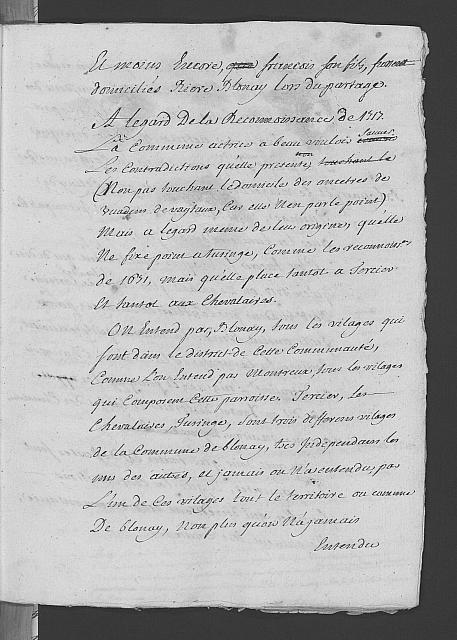 Et moins Encore, que francois son fils, furent
domiciliés Riére Blonay lors du partage.
A legard De la Reconnoissance de 1517.
La Commune actrice a beau vouloir sauver
Les Contradictions qu'elle presente, non touchant le
(Non pas touchant ledomicile des ancetres de
vuadens de vaytaux, Car elle N'en parle point)
Mais a légard meme de leur origine, qu'elle
Ne fixe point a Turinge, Comme les reconnoiss.es
de 1631, mais qu'elle place tantot a Tercier
Et tantot aux Chevalaires.
ON Entend par, Blonay, tous les vilages qui
sont dans le district de Cette Communauté,
Comme L'on Entend par Montreux, tous les vilages
qui Composent Cette parroisse. Tercier, Les
Chevalaires, Turinge, sont trois differens vilages
de la Commune de blonay, tres Independans les
uns des autres, et jamais on N'a entendu, par
L'un de Ces vilages tout le territoire ou commune
De blonay, Non plus qu'on N'a jamais
Entendu